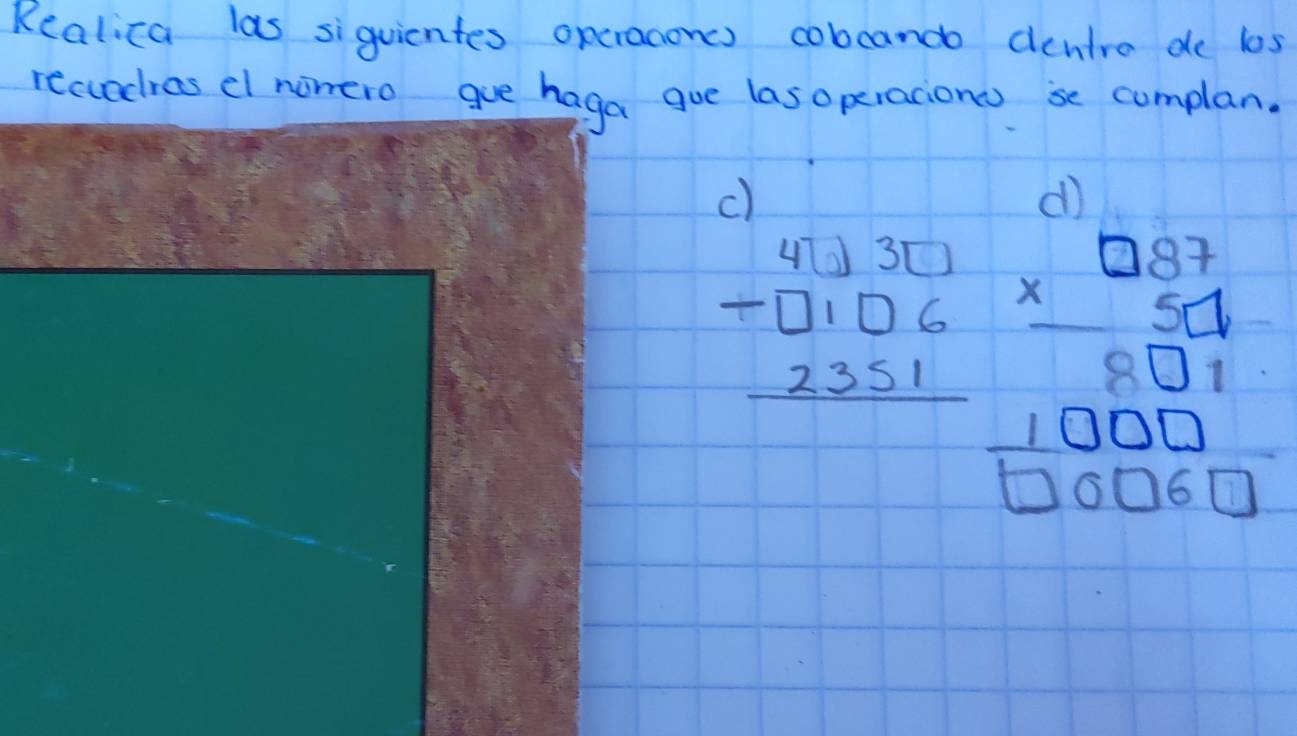 Realiza las siguientes operaciones colocando dentro de los
recuadros el número que haga que las operaciones se cumplan.
c)
4□3□
-□1□6
2351
d)
□87
x 5□
8□1
1□□□
□0□6□